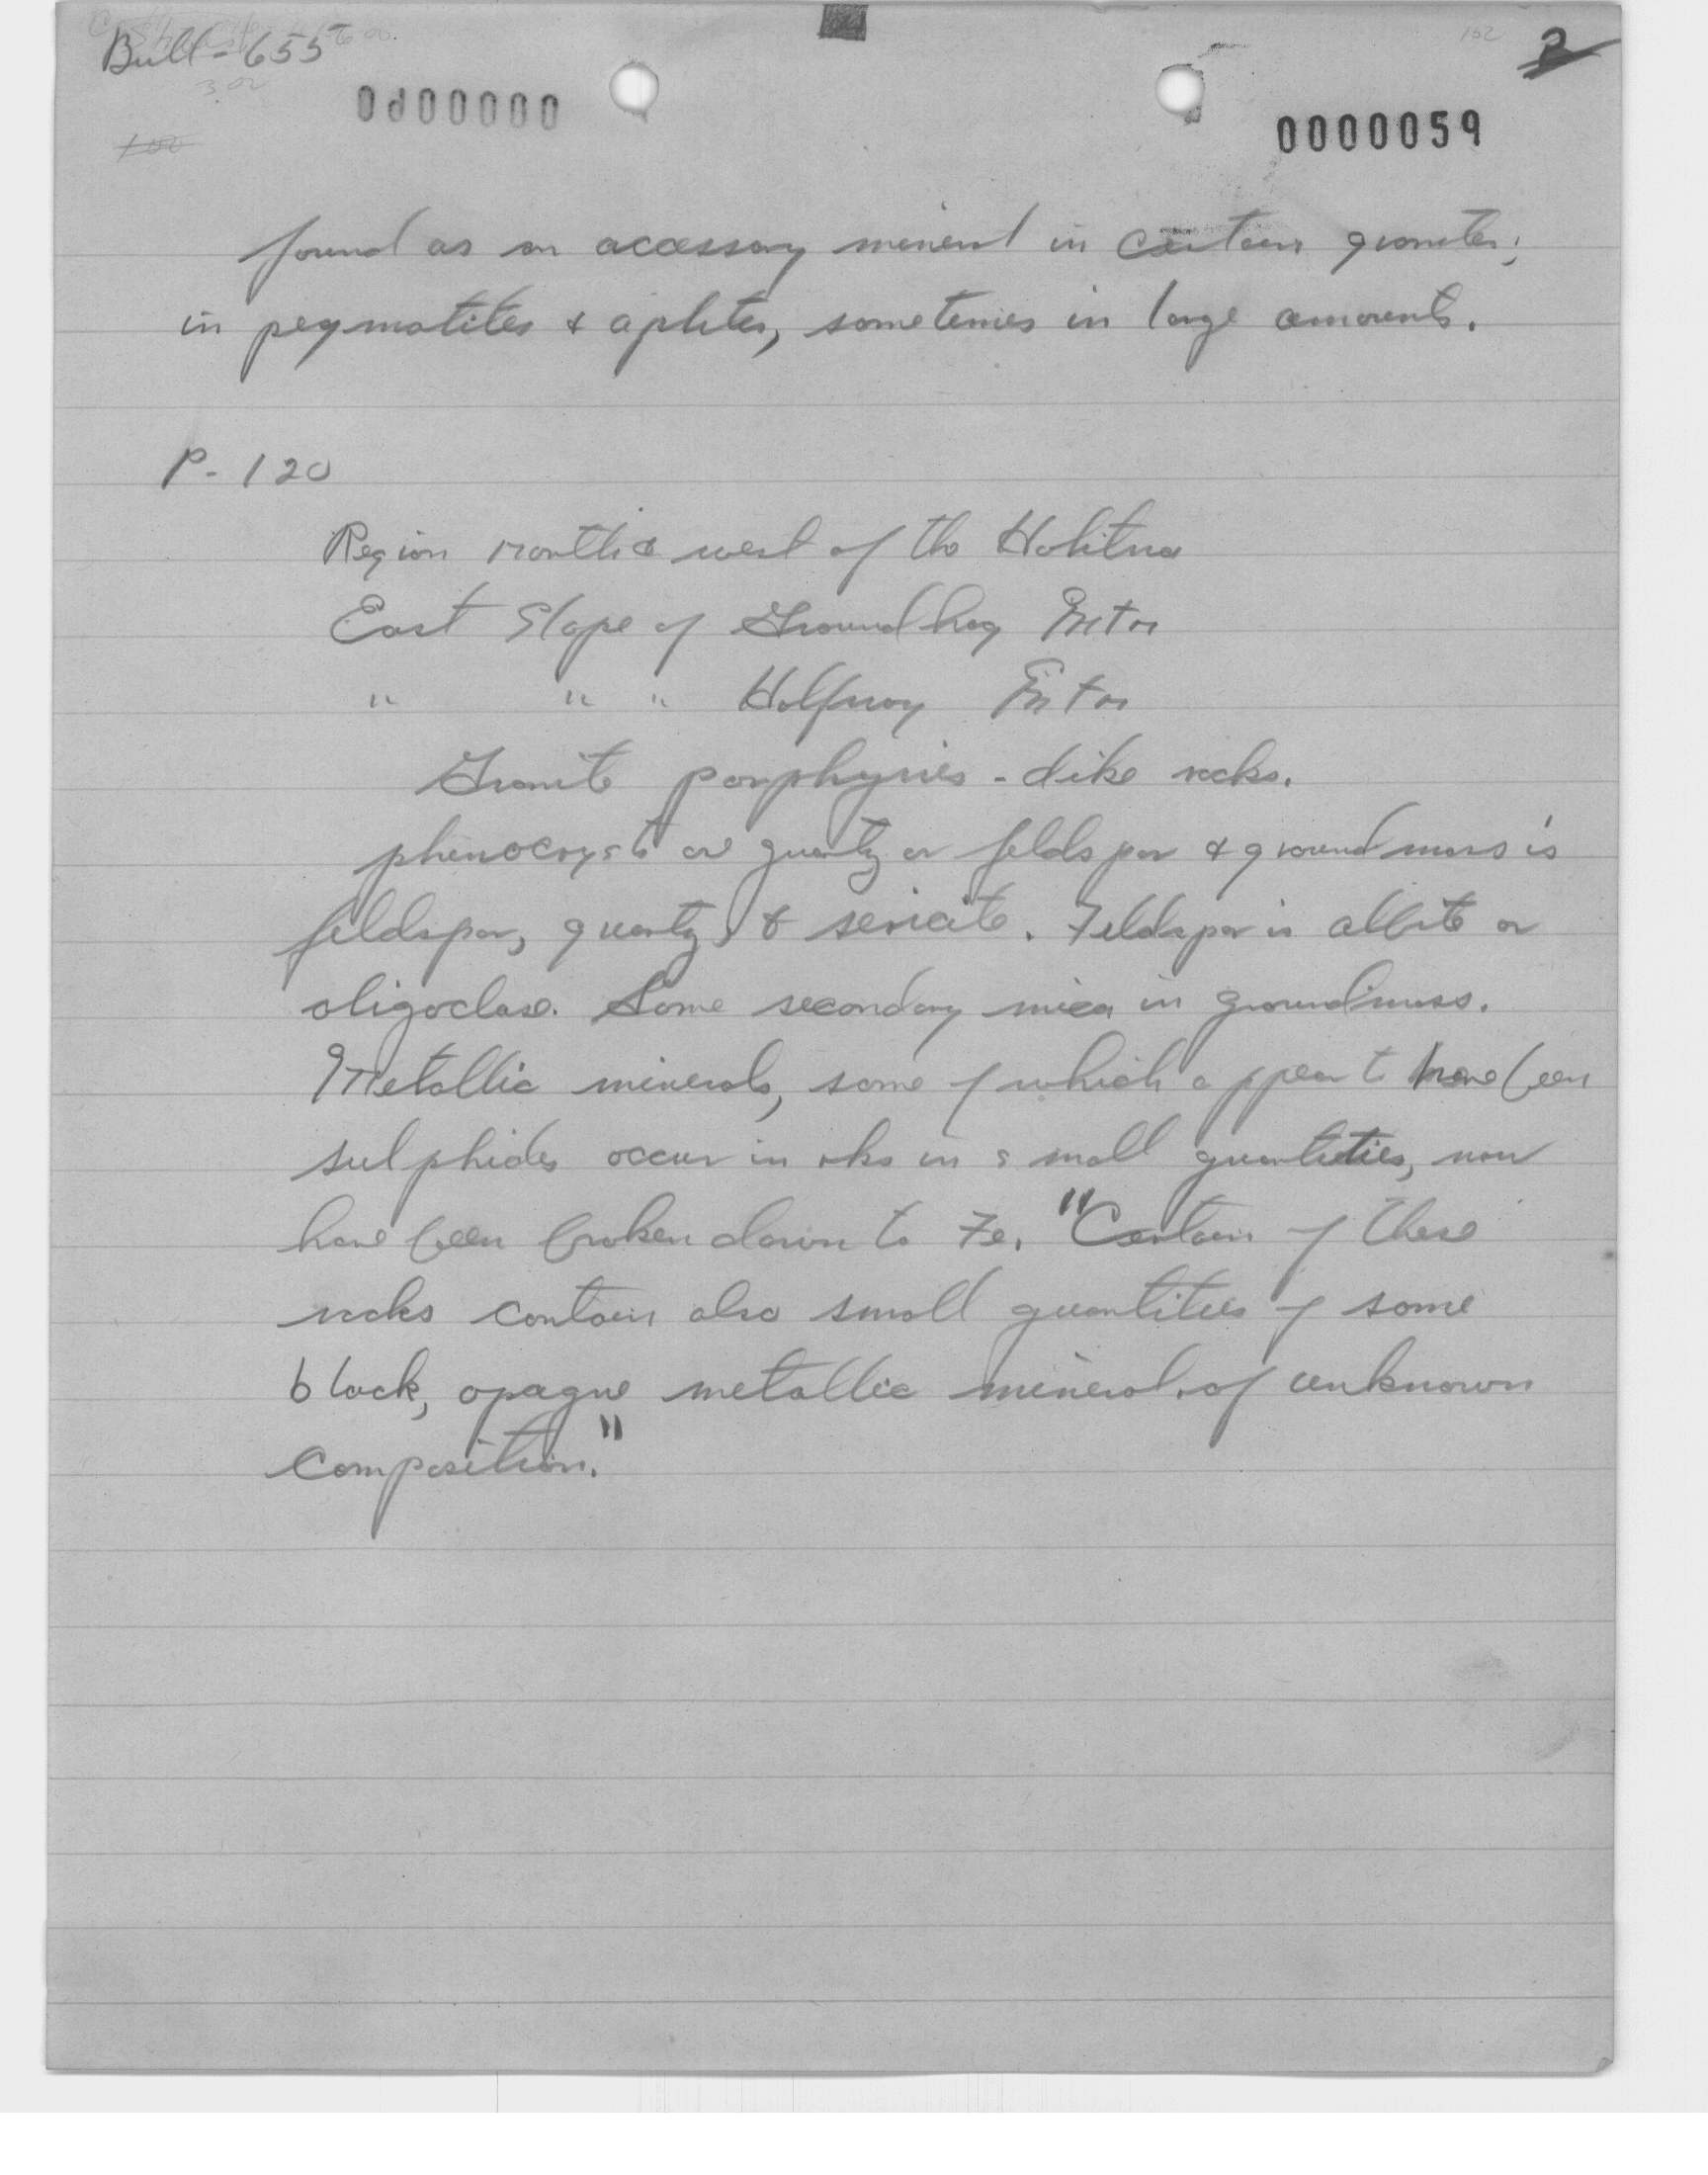 Bull - 655
2
0000000
0000059
found as an accessory mineral in certain granites;
in pegmatites & aplites, sometimes in large amounts.
P- 120
Region north & west of the Holitna
East Slope of Groundhog Mtn
" " " Halfway Mtn
Granite porphyries - dike rocks.
phenocrysts are quartz or feldspar & groundmass is
feldspar, quartz, & sericite. Feldspar is albite or
oligoclase. Some secondary mica in groundmass.
Metallic minerals, some of which appear to have been
sulphides occur in rks in small quantities, now
have been broken down to Fe. "Certain of these
rocks contain also small quantities of some
black, opaque metallic mineral of unknown
composition."